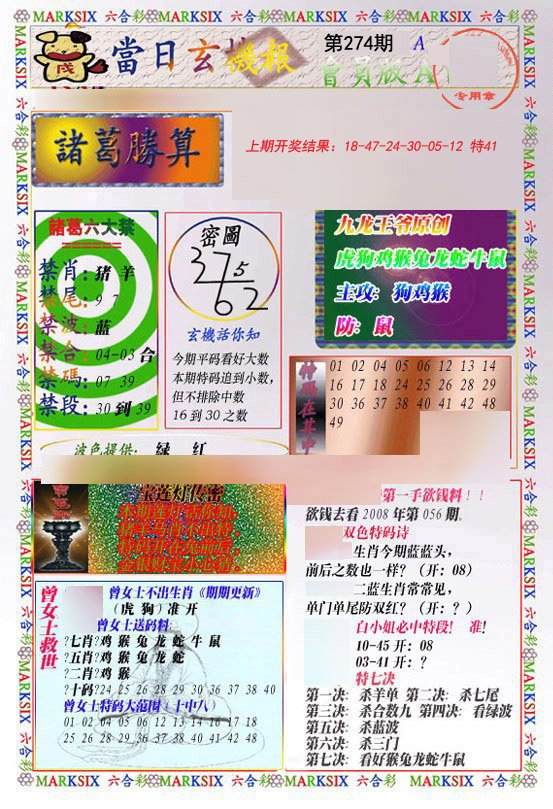 MARKSIX 六合彩 MARKSIX 六合彩 MARKSIX 六合彩 MARKSIX 六合彩
當日玄機報
第274期 A
會員版A
专用章
諸葛勝算
上期开奖结果：18-47-24-30-05-12 特41
諸葛六大禁
禁肖：猪 羊
禁尾：9 7
禁波：蓝
禁合：04-03 合
禁碼：07 39
禁段：30 到 39
密圖
37562
玄機話你知
今期平码看好大数
本期特码追到小数，
但不排除中数
16 到 30 之数
九龙王爷原创
虎狗鸡猴兔龙蛇牛鼠
主攻：狗鸡猴
防：鼠
特码在其中
01 02 04 05 06 12 13 14
16 17 18 24 25 26 28 29
30 36 37 38 40 41 42 48
49
波色提供： 绿 红
宝莲灯传密
第一手欲钱料！！
欲钱去看 2008 年第 056 期.
双色特码诗
生肖今期蓝蓝头，
前后之数也一样？（开：08）
二蓝生肖常常见，
单门单尾防双红？（开：？）
白小姐必中特段！ 准！
10-45 开：08
03-41 开：？
特七决
第一决：杀羊单 第二决：杀七尾
第三决：杀合数九 第四决：看绿波
第五决：杀蓝波
第六决：杀三门
第七决：看好猴兔龙蛇牛鼠
曾女士救世
曾女士不出生肖《期期更新》
（虎 狗）准 开
曾女士送码料：
?七肖?鸡 猴 兔 龙 蛇 牛 鼠
?五肖?鸡 猴 兔 龙 蛇
?二肖?鸡 猴
?十码?24 25 26 28 29 30 36 37 38 40
曾女士特码大范围（十中八）
01 02 04 05 06 12 13 14 16 17 18
25 26 28 29 36 37 38 40 41 42 48
MARKSIX 六合彩 MARKSIX 六合彩 MARKSIX 六合彩 MARKSIX 六合彩